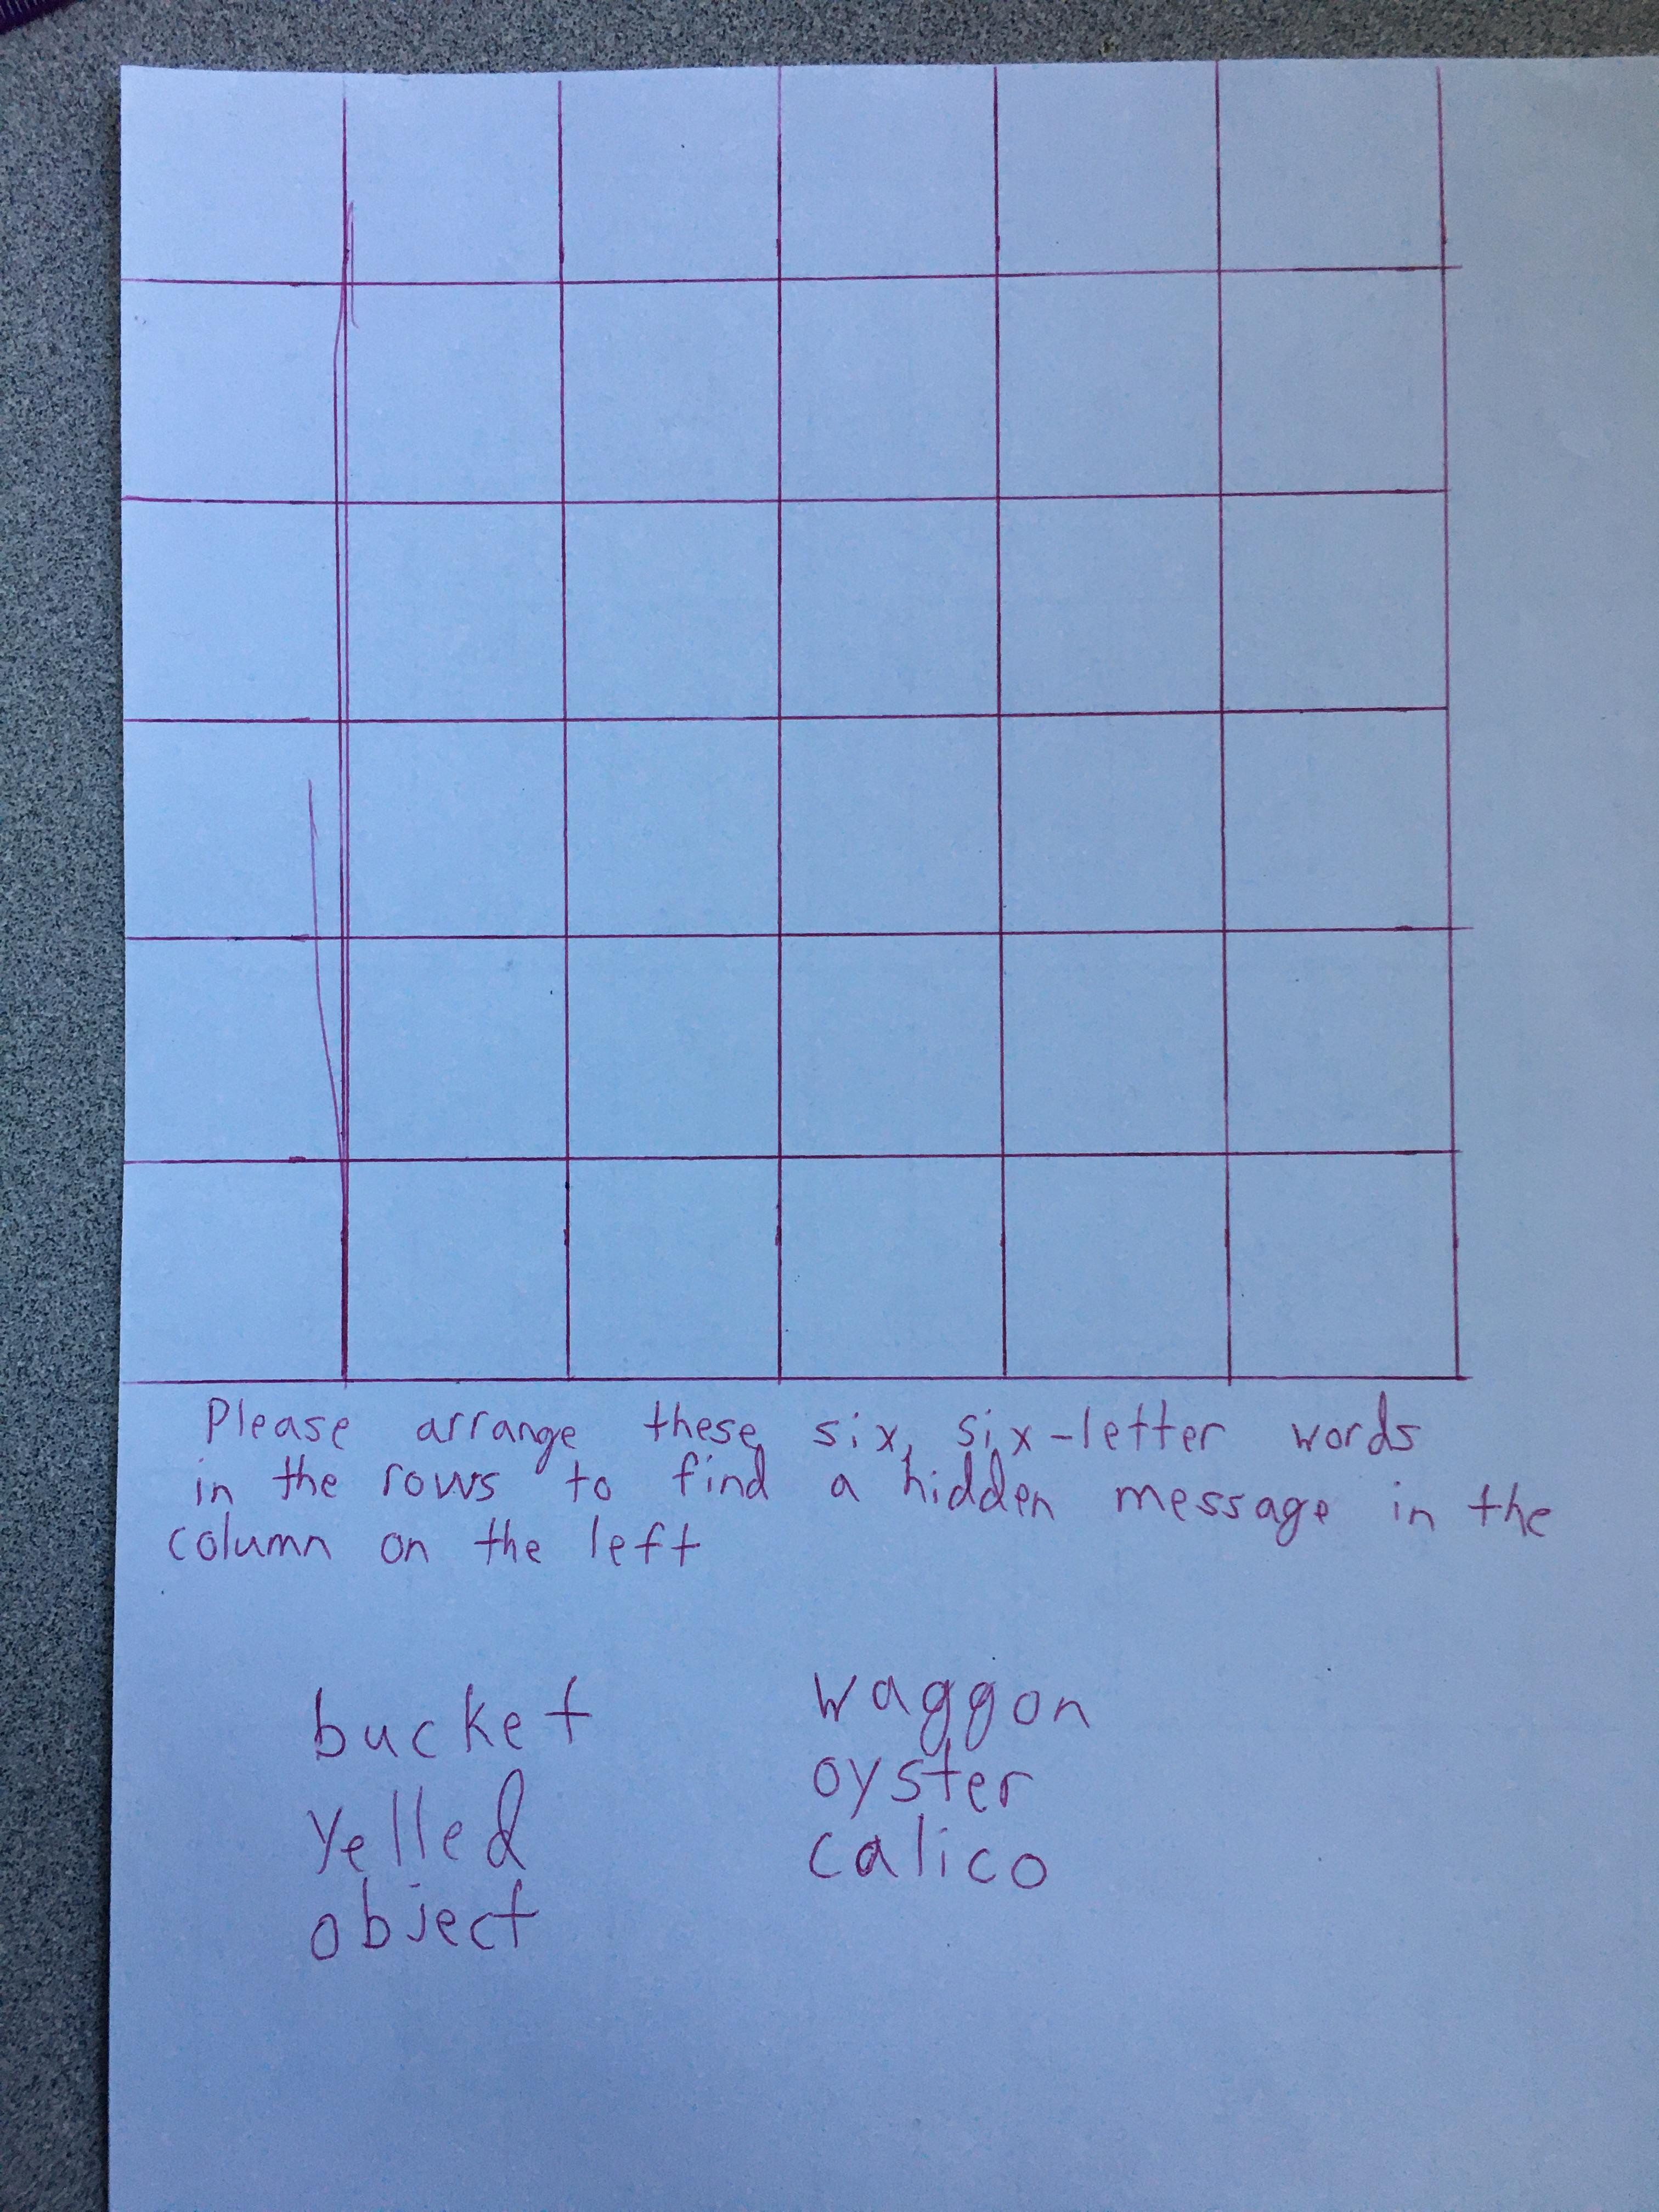 Please arrange these six, six-letter words
in the rows to find a hidden message in the
column on the left
bucket
yelled
object
waggon
oyster
calico